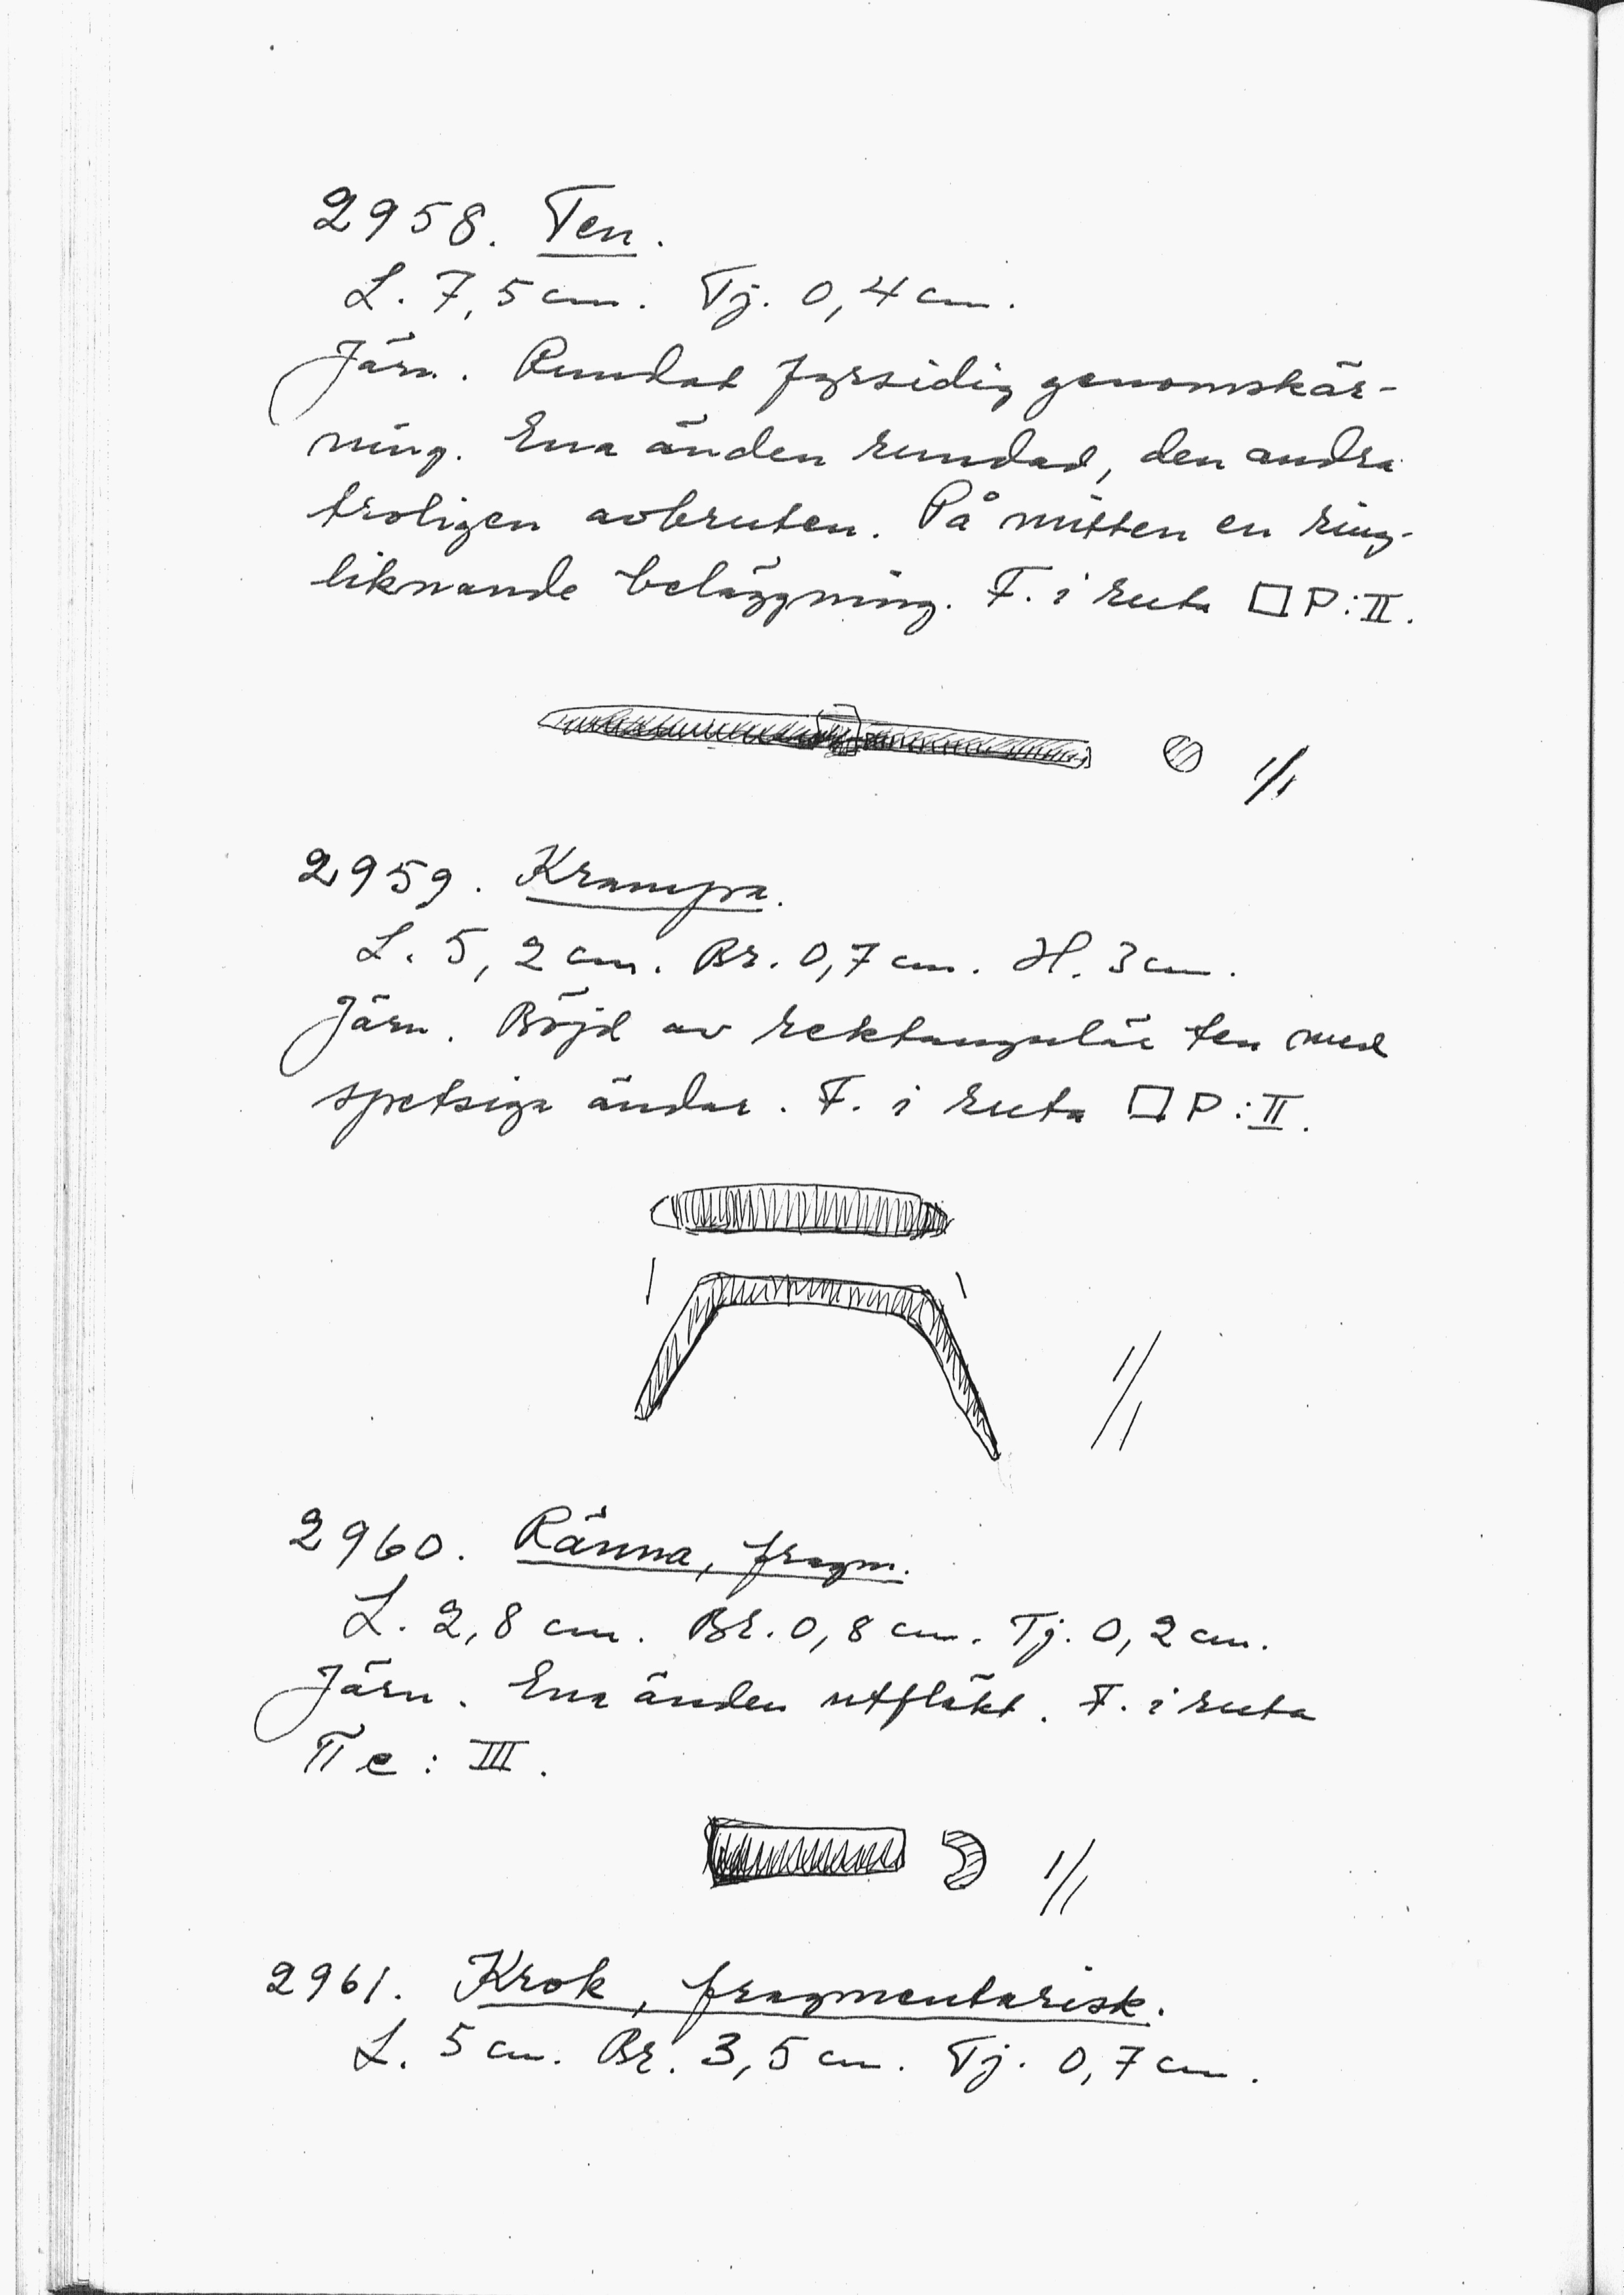 2958. Ten.
L. 7,5 cm. Tj. 0,4 cm.
Järn. Rundat fyrsidig genomskär-
ning. Ena änden rundad, den andra
troligen avbruten. På mitten en ring-
liknande beläggning. F. i ruta □ P:II.
1/1
2959. Krampa.
L. 5,2 cm. Br. 0,7 cm. H. 3 cm.
Järn. Böjd av rektangulär ten med
spetsiga ändar. F. i ruta □ P:II.
1/1
2960. Ränna, fragm.
L. 2,8 cm. Br. 0,8 cm. Tj. 0,2 cm.
Järn. Ena änden utfläkt. F. i ruta
Π e : III.
1/1
2961. Krok, fragmentarisk.
L. 5 cm. Br. 3,5 cm. Tj. 0,7 cm.